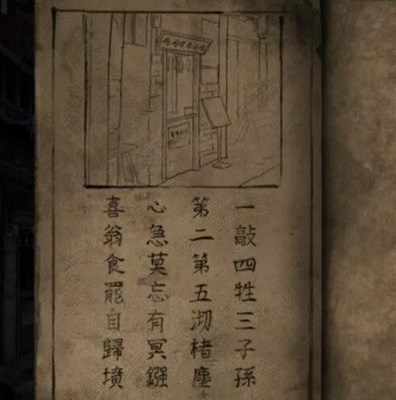 一敲四牲三子孫
第二第五沏楮塵
心急莫忘有冥鏹
喜翁食罷自歸墳